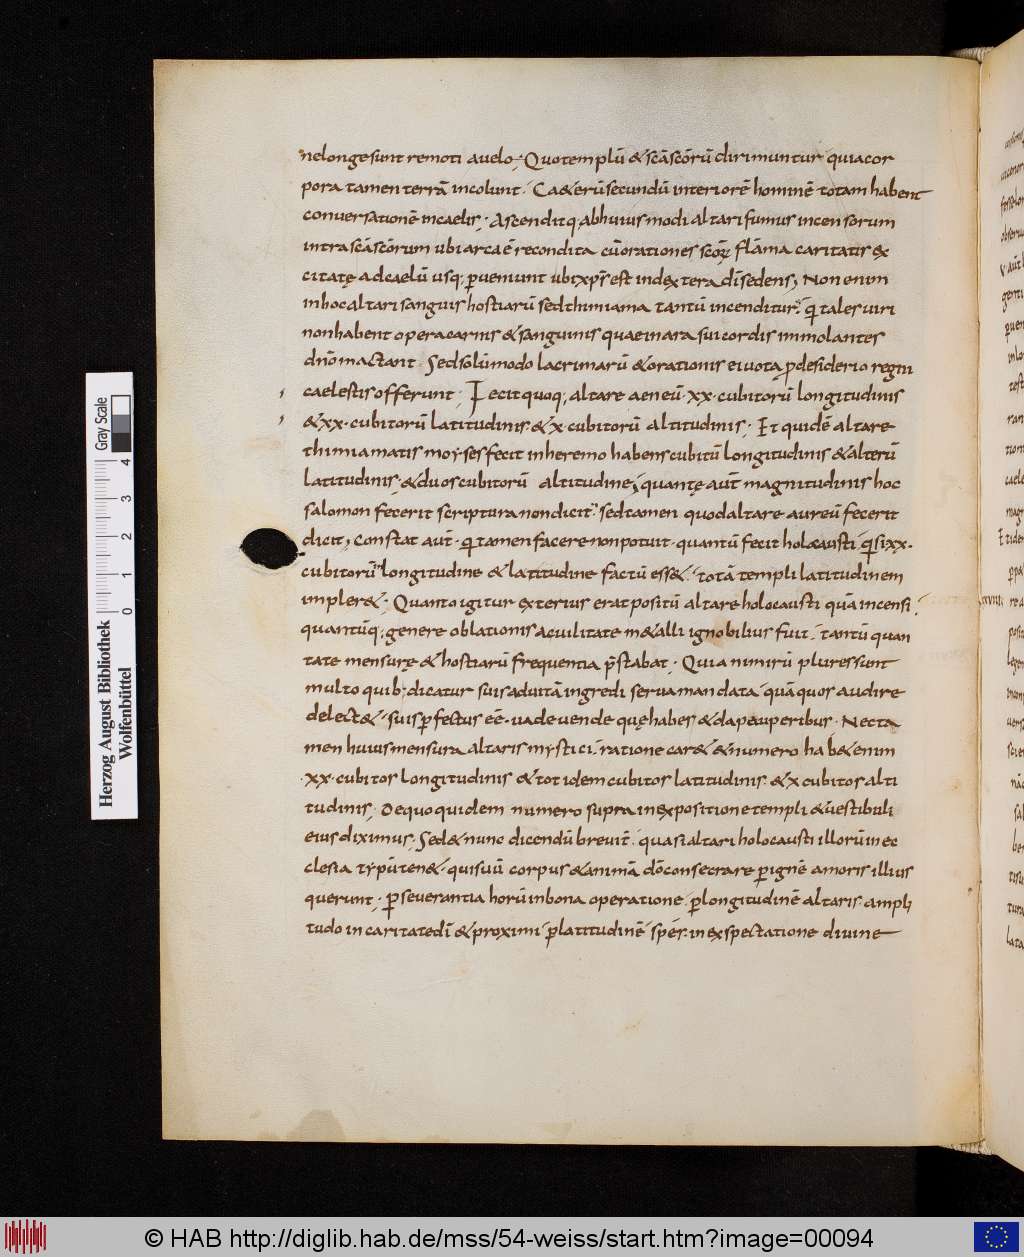 ne longe sunt remoti a uelo; Quo templū & sc̄a sc̄orū dirimuntur quia cor
pora tamen terrā incolunt. Caeterū secundū interiorē hominē totam habent
conuersationē in caelis; Ascenditq; ab huius modi altari fumus incensorum
intra sc̄a sc̄orum ubi arca ē recondita cū orationes sc̄oꝝ flāma caritatis ex
citatę ad caelū usq; ꝑueniunt ubi xp̄s est in dextera dī sedens; Non enim
in hoc altari sanguis hostiarū sed thimiama tantū incenditur. q̄ tales uiri
non habent opera carnis & sanguinis quae in ara sui cordis immolantes
dn̄o mactant. Sed solūmodo lacrimarū & orationis ei uota ꝓ desiderio regni
caelestis offerunt; Fecit quoq; altare aeneū ·xx· cubitorū longitudinis
& xx· cubitorū latitudinis & x cubitorū altitudinis; Et quidē altare
thimiamatis moyses fecit in heremo habens cubitū longitudinis & alterū
latitudinis; & duos cubitorū altitudine; quantę aut̄ magnitudinis hoc
salomon fecerit scriptura non dicit. sed tamen quod altare aureū fecerit
dicit; Constat aut̄· q̄ tamen facere non potuit· quantū fecit holocausti q̄ si xx·
cubitorū longitudine & latitudine factū ess& totā templi latitudinem
impler&; Quanto igitur exterius erat positū altare holocausti quā incensi
quantūq; genere oblationis ac uilitate m&alli ignobilius fuit. tantū quan
titate mensurę & hostiarū frequentia p̄stabat; Quia nimirū plures sunt
multo quib; dicatur si uis ad uitā ingredi serua mandata quā quos audire
delect& si uis ꝑfectus eē· uade uende quę habes & da pauperibus· Nec ta
men huius mensura altaris mystici ratione car& & numero hab& enim
·xx· cubitos longitudinis & totidem cubitos latitudinis· & x cubitos alti
tudinis; De quo quidem numero supra in expositione templi & uestibuli
eius diximus; Sed & nunc dicendū breuit̄ quasi altari holocausti illorū in ec
clesia typū ten& qui suū corpus & animā dō consecrare ꝑ ignē amoris illius
querunt; ꝑseuerantia horū in bona operatione ꝑ longitudinē altaris ampli
tudo in caritate dī & proximi ꝑ latitudinē spes in exspectatione diuine
Herzog August Bibliothek
Wolfenbüttel
0 1 2 3 4
Gray Scale
© HAB http://diglib.hab.de/mss/54-weiss/start.htm?image=00094